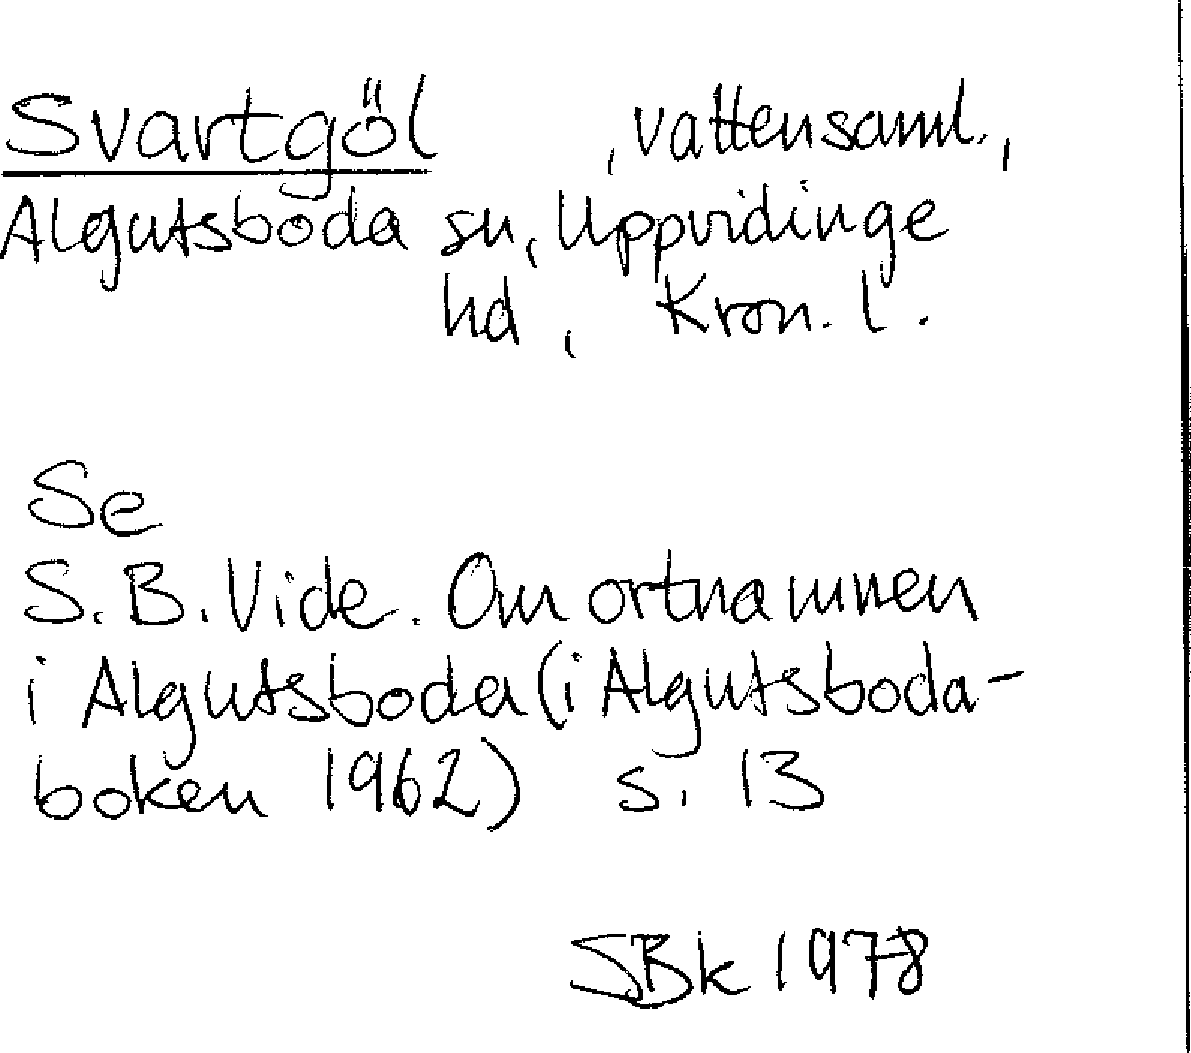 Svartgöl , vattensaml.,
Algutsboda sn, Uppvidinge
hd, Kron. l.
Se
S. B. Vide. Om ortnamnen
i Algutsboda (i Algutsboda-
boken 1962) s. 13
SBk 1978